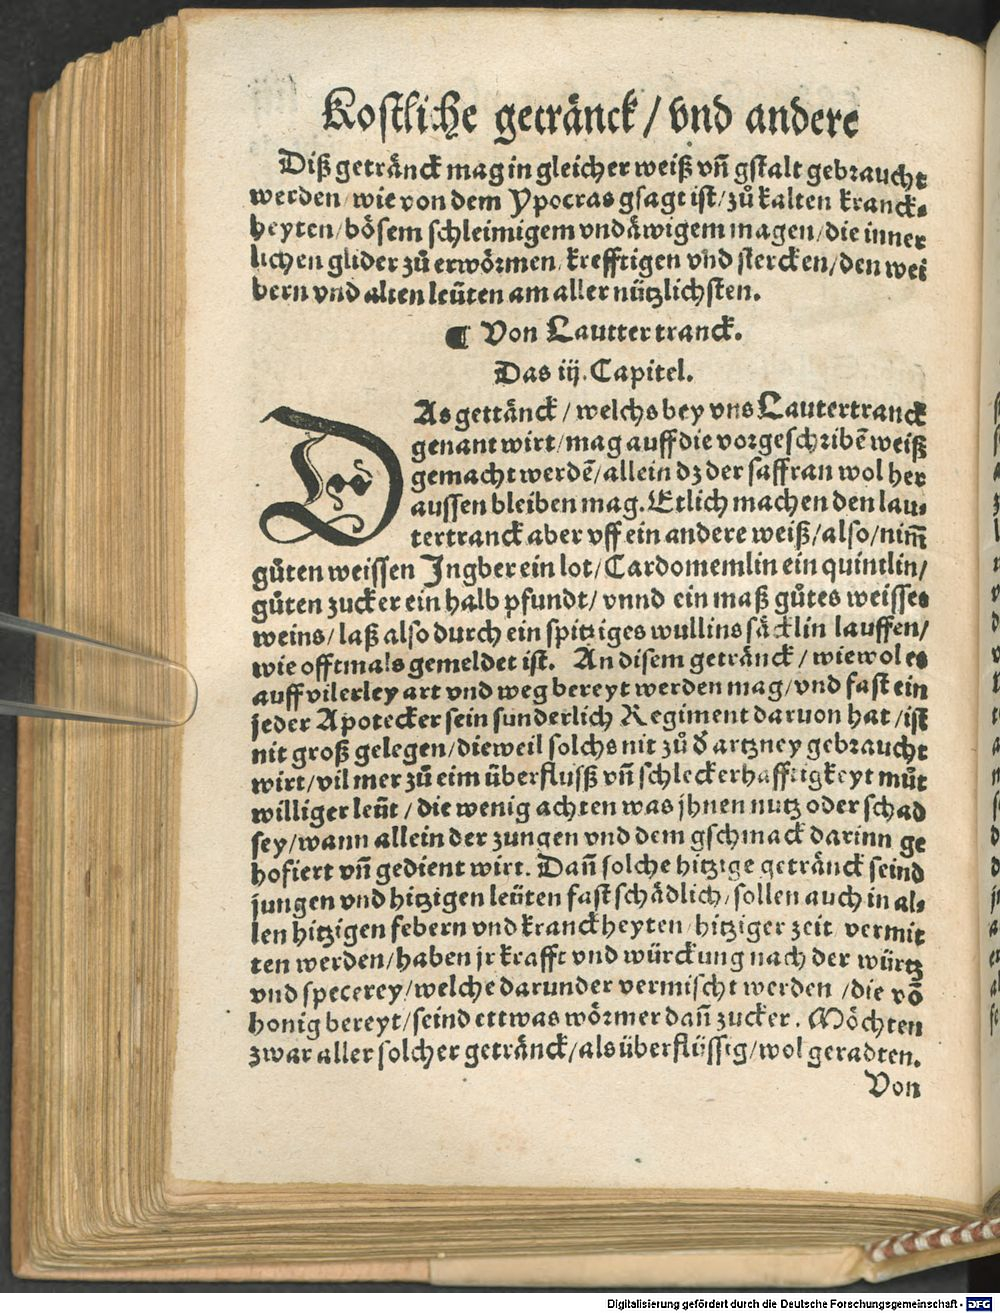 Kostliche getränck / vnd andere
Diß getränck mag in gleicher weiß vn̄ gstalt gebraucht
werden / wie von dem Ypocras gsagt ist / zuͦ kalten kranck⸗
heyten / bösem schleimigem vndäwigem magen / die inner
lichen glider zuͦ erwörmen / krefftigen vnd stercken / den wei
bern vnd alten leüten am aller nützlichsten.
¶ Von Lauttertranck.
Das iij. Capitel.
DAs gettänck / welchs bey vns Lautertranck
genant wirt / mag auff die vorgeschribē weiß
gemacht werdē / allein dz der saffran wol her
aussen bleiben mag. Etlich machen den lau⸗
tertranck aber vff ein andere weiß / also / nim̄
guͦten weissen Ingber ein lot / Cardomemlin ein quintlin /
guͦten zucker ein halb pfundt / vnnd ein maß guͦtes weisses
weins / laß also durch ein spitziges wullins säcklin lauffen /
wie offtmals gemeldet ist. An disem getränck / wiewol es
auff vilerley art vnd weg bereyt werden mag / vnd fast ein
jeder Apotecker sein sunderlich Regiment daruon hat / ist
nit groß gelegen / dieweil solchs nit zuͦ d̓ artzney gebraucht
wirt / vil mer zuͦ eim überflusß vn̄ schleckerhafftigkeyt muͦt
williger leüt / die wenig achten was jhnen nutz oder schad
sey / wann allein der zungen vnd dem gschmack darinn ge
hofiert vn̄ gedient wirt. Dan̄ solche hitzige getränck seind
jungen vnd hitzigen leüten fast schädlich / sollen auch in al⸗
len hitzigen febern vnd kranckheyten / hitziger zeit / vermit
ten werden / haben jr krafft vnd würckung nach der würtz
vnd specerey / welche darunder vermischt werden / die vō
honig bereyt / seind ettwas wörmer dan̄ zucker. Möchten
zwar aller solcher getränck / als überflüssig / wol geradten.
Von
Digitalisierung gefördert durch die Deutsche Forschungsgemeinschaft - DFG